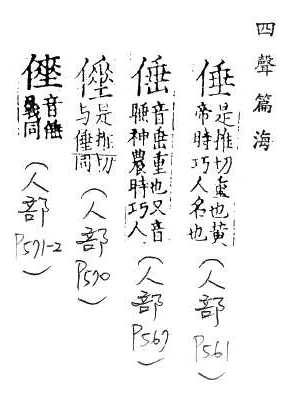 四聲篇海
倕
是推切重也黃
帝時巧人名也
(人部 P561)
音垂重也又音
睡神農時巧人
(人部 P567)
是推切
与倕同
(人部 P590)
義同
(人部 P591-2)